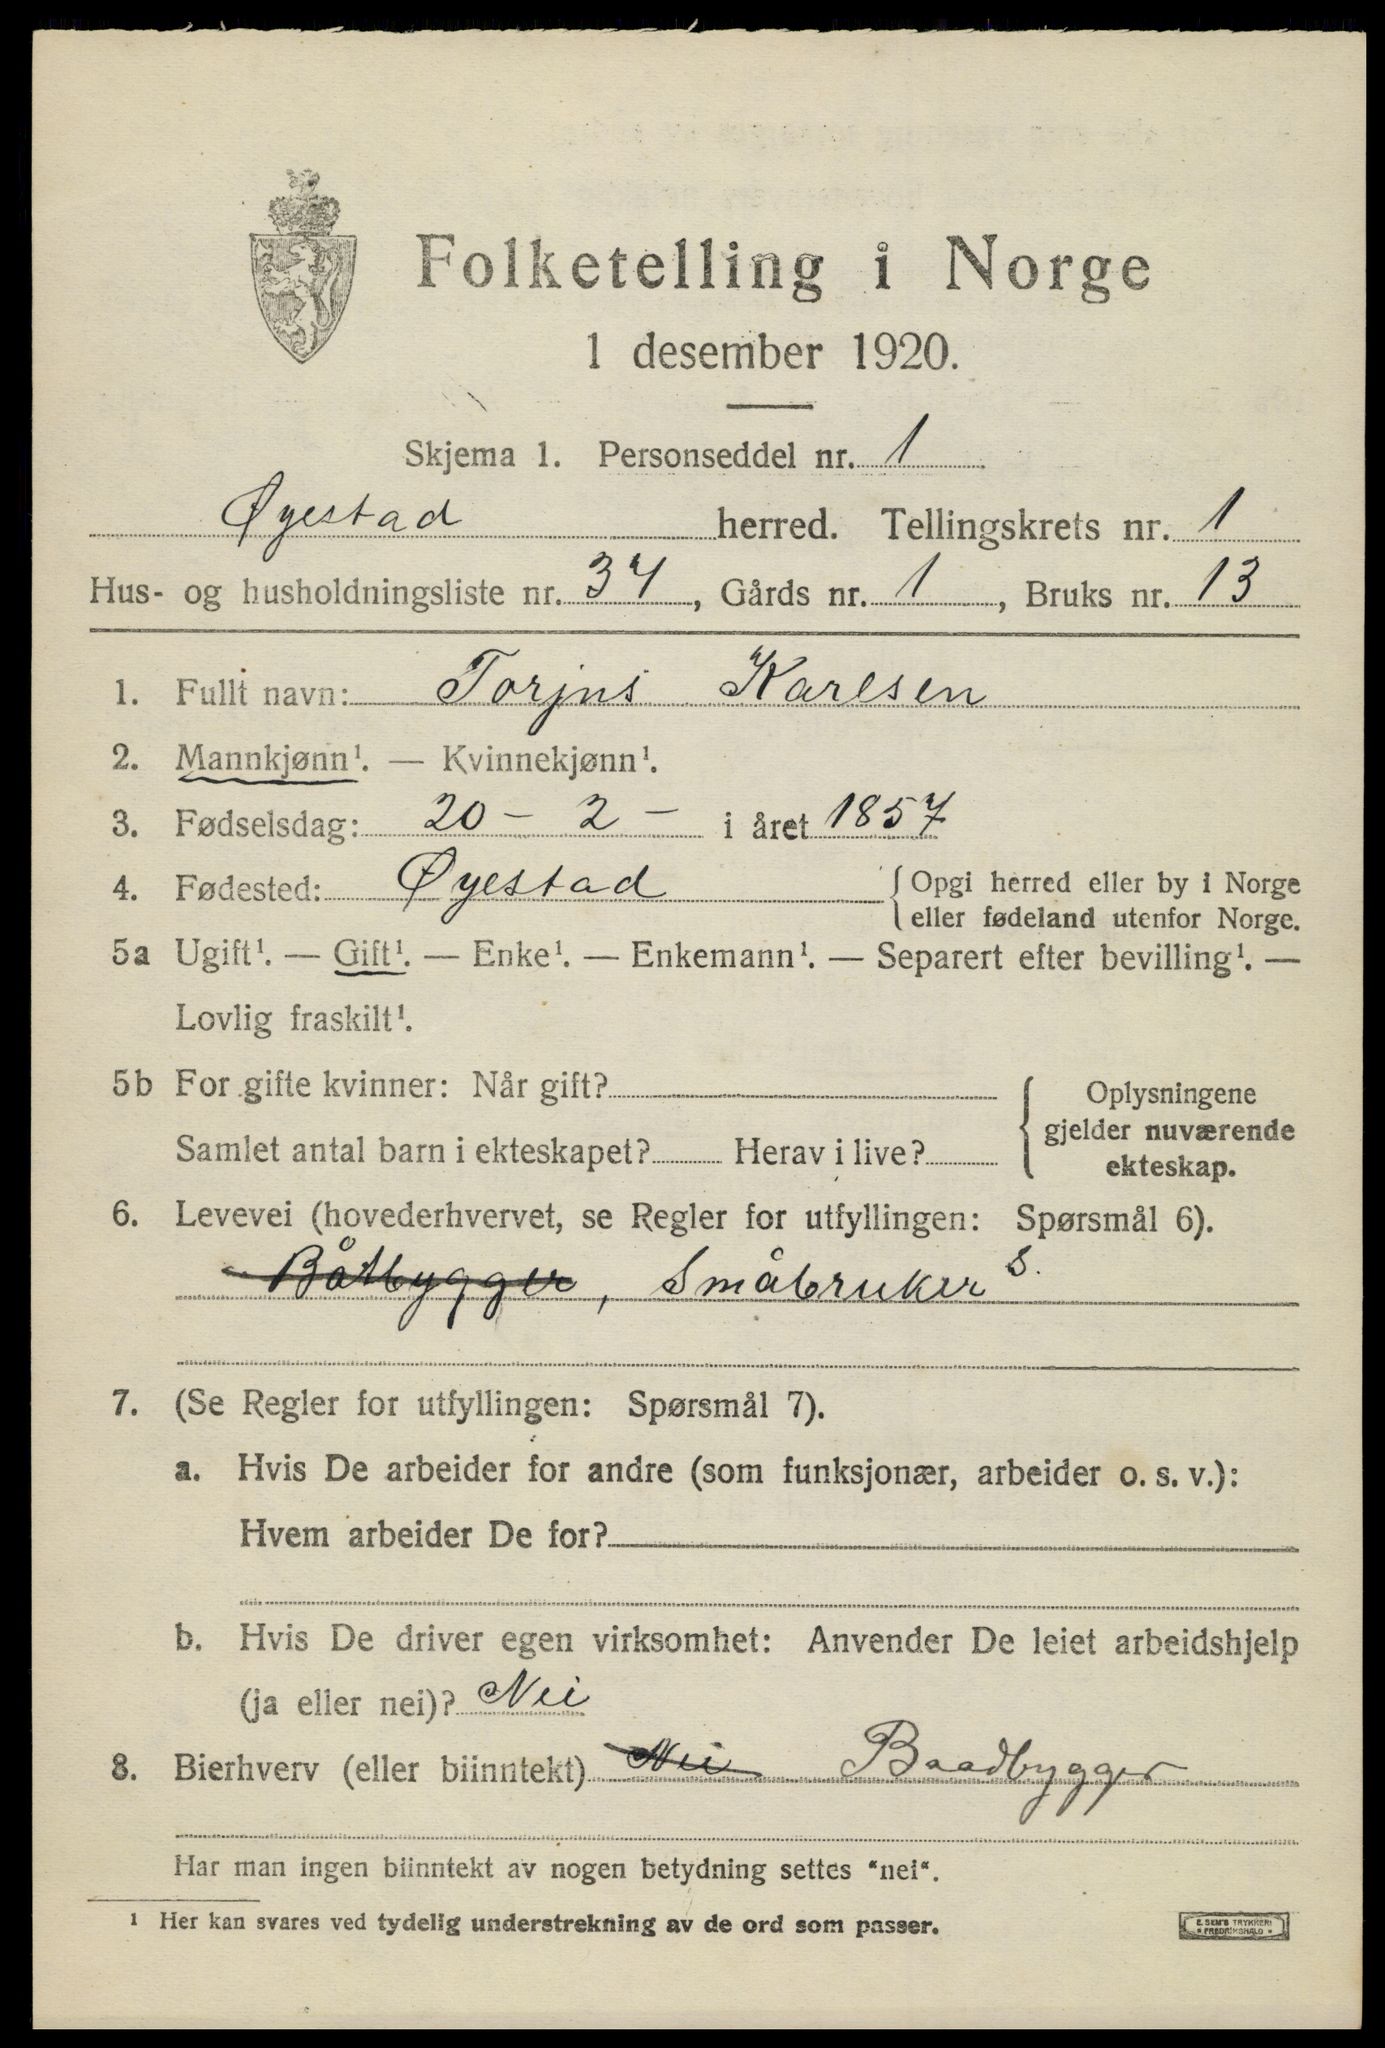 Folketelling i Norge
1 desember 1920.
Skjema 1. Personseddel nr. 1
Øyestad herred. Tellingskrets nr. 1
Hus- og husholdningsliste nr. 34, Gårds nr. 1, Bruks nr. 13
1. Fullt navn: Torjus Karlsen
2. Mannkjønn¹. — Kvinnekjønn¹.
3. Fødselsdag: 20 – 2 – i året 1857
4. Fødested: Øyestad { Opgi herred eller by i Norge
eller fødeland utenfor Norge.
5a Ugift¹. — Gift¹. — Enke¹. — Enkemann¹. — Separert efter bevilling¹. —
Lovlig fraskilt¹.
5b For gifte kvinner: Når gift? { Oplysningene
gjelder nuværende
Samlet antal barn i ekteskapet? Herav i live?
ekteskap.
6. Levevei (hovederhvervet, se Regler for utfyllingen: Spørsmål 6).
Båtbygger, Småbruker S.
7. (Se Regler for utfyllingen: Spørsmål 7).
a. Hvis De arbeider for andre (som funksjonær, arbeider o. s. v.):
Hvem arbeider De for?
b. Hvis De driver egen virksomhet: Anvender De leiet arbeidshjelp
(ja eller nei)? Nei
8. Bierhverv (eller biinntekt) Nei Baadbygger
Har man ingen biinntekt av nogen betydning settes "nei".
¹ Her kan svares ved tydelig understrekning av de ord som passer.
E. SEM'S TRYKKERI
* FREDRIKSHALD *